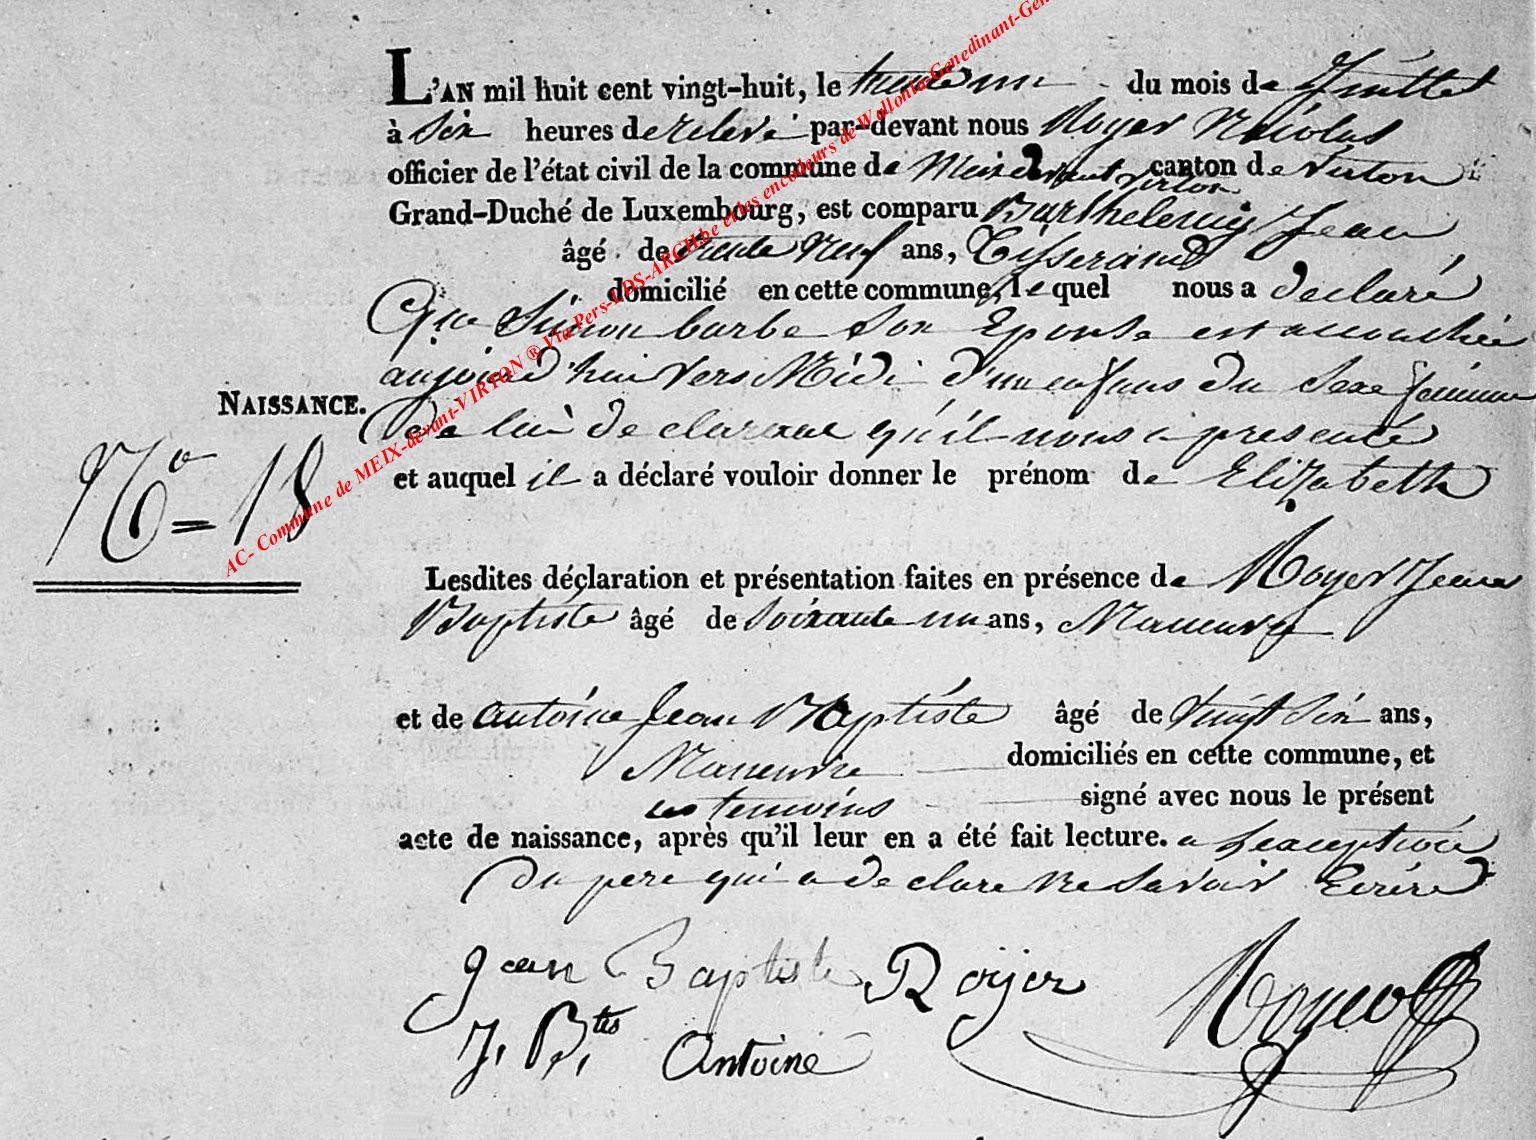 L'AN mil huit cent vingt-huit, le trente un du mois de Juillet
à Six heures de relevé par-devant nous Royer Nicolas
officier de l'état civil de la commune de Meix devant virton canton de Virton
Grand-Duché de Luxembourg, est comparu Barthelemy Jean
âgé de trente Neuf ans, Tisserand
domicilié en cette commune, le quel nous a declaré
Que Simon barbe Son Epouse est accouchée
aujourd'hui vers Midi d'un enfans du Sexe feminin
De lui declarant qu'il nous a presenté
NAISSANCE.
No = 18
et auquel il a déclaré vouloir donner le prénom de Elizabeth
Lesdites déclaration et présentation faites en présence de Royer Jean
Baptiste âgé de Soixante un ans, Maneuvre
et de antoine Jean Baptiste âgé de Vingt Six ans,
Maneuvre domiciliés en cette commune, et
les temoins signé avec nous le présent
acte de naissance, après qu'il leur en a été fait lecture. a l'exception
Du pere qui a declare ne Savoir Ecrire
Jean Baptiste Royer
J. Btis Antoine
Royer
AC- Commune de MEIX-devant-VIRTON ® Via Pers-LDS-ARCH.be et les encodeurs de Wallonia-Genedinant-Gen